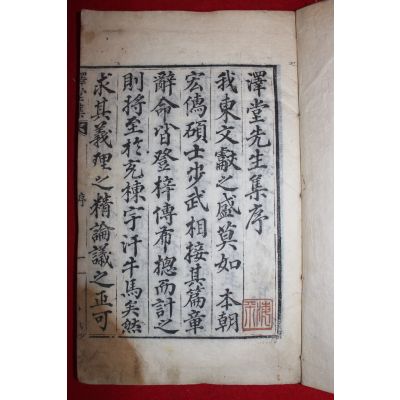 澤堂先生集序
我東文獻之盛莫如 本朝
宏儒碩士步武相接其篇章
辭命皆登梓傳布揔而計之
則將至於充棟宇汗牛馬矣然
求其義理之精論議之正可
序